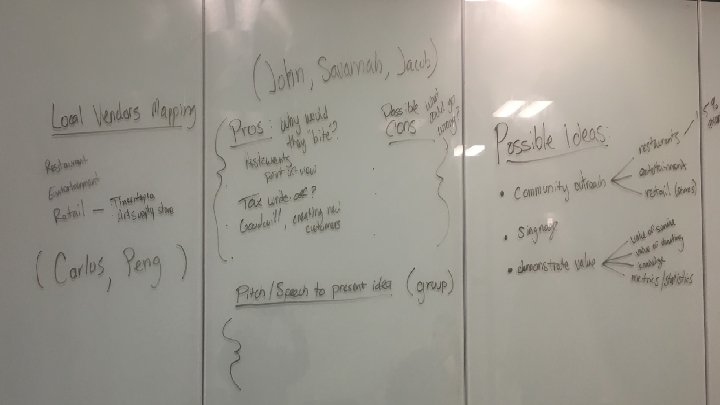 Local Vendors Mapping
Restaurant
Entertainment
Retail —
Art supply store
(Carlos, Peng)
(John, Savannah, Jacob)
Pros: why would
they "bite"?
point of view
Tax write-off?
Goodwill, creating new
customers
Possible what
could go
wrong?
Cons
Pitch/Speech to present idea (group)
Possible Ideas:
• Community outreach
restaurants
entertainment
retail (stores)
• Signage
• demonstrate value
value of
value of
knowledge
metrics/statistics
5%